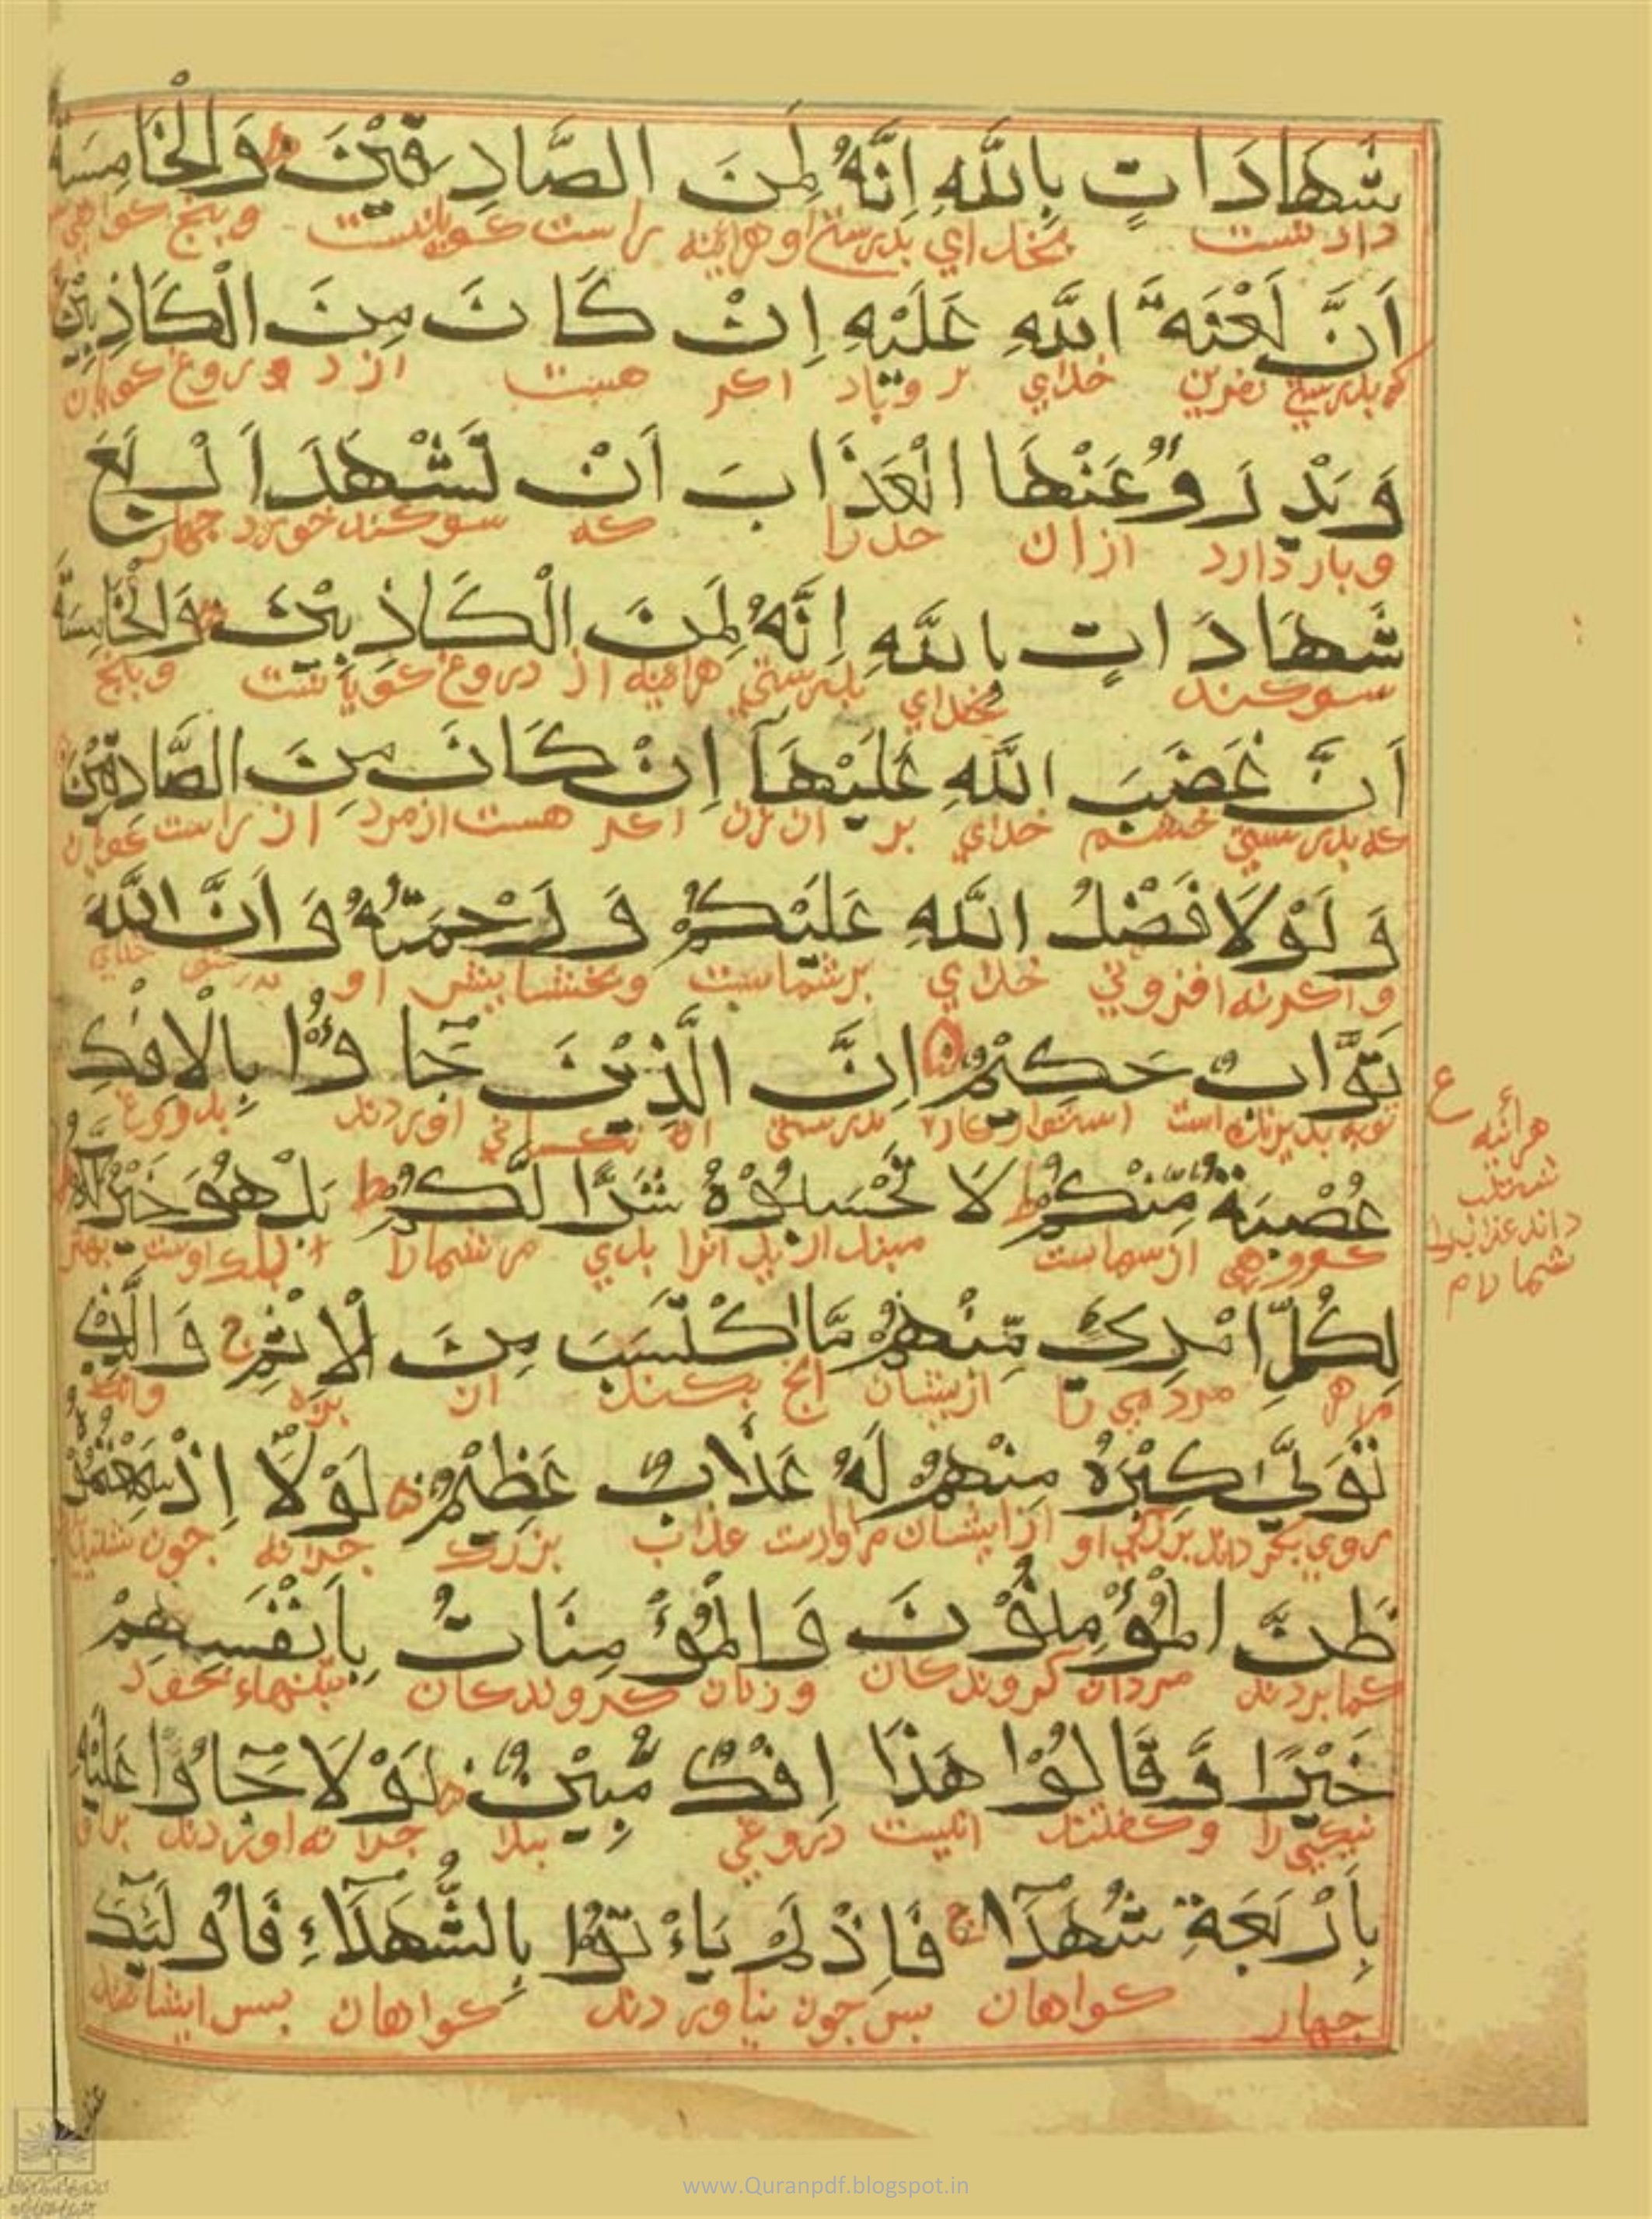 شَهَادَاتٍ بِاللّٰهِ اِنَّهُ لَمِنَ الصَّادِقِيْنَ وَالْخَامِسَةُ
دادنست بخدای بدرستی او هراینه راست کویانست و پنج کواهی
اَنَّ لَعْنَةَ اللّٰهِ عَلَيْهِ اِنْ كَانَ مِنَ الْكَاذِبِيْنَ
که بدرستی نفرین خدای بر وی باد اکر هست از دروغ کویان
وَيَدْرَؤُ عَنْهَا الْعَذَابَ اَنْ تَشْهَدَ اَرْبَعَ
و باز دارد از ان حد را که سوکند خورد چهار
شَهَادَاتٍ بِاللّٰهِ اِنَّهُ لَمِنَ الْكَاذِبِيْنَ وَالْخَامِسَةَ
سوکند بخدای بدرستی هراینه از دروغ کویانست و پنج
اَنَّ غَضَبَ اللّٰهِ عَلَيْهَا اِنْ كَانَ مِنَ الصَّادِقِيْنَ
که بدرستی خشم خدای بر ان زن اکر هست از مرد از راست کویان
وَلَوْلَا فَضْلُ اللّٰهِ عَلَيْكُمْ وَرَحْمَتُهُ وَاَنَّ اللّٰهَ
و اکر نه افزونی خدای بر شماست و بخشایش او خدای
تَوَّابٌ حَكِيْمٌ اِنَّ الَّذِيْنَ جَاؤُا بِالْاِفْكِ
توبه است استوار کار بدرستی اوردند بدروغ
عُصْبَةٌ مِّنْكُمْ ط لَا تَحْسَبُوْهُ شَرًّا لَّكُمْ ط بَلْ هُوَ خَيْرٌ لَّكُمْ
کروهی از شماست انرا بدی مر شما را بلکه اوست بهتر
لِكُلِّ امْرِئٍ مِّنْهُمْ مَّا اكْتَسَبَ مِنَ الْاِثْمِ ج وَالَّذِيْ
مر هر مردی را ازیشان انچ بکند از بزه وانکه
تَوَلّٰى كِبْرَهُ مِنْهُمْ لَهُ عَذَابٌ عَظِيْمٌ لَوْلَا اِذْ سَمِعْتُمُوْهُ
روی بکرداند بزرکی او از ایشان مر اوراست عذاب بزرک چرا نه چون شنیدید
ظَنَّ الْمُؤْمِنُوْنَ وَالْمُؤْمِنَاتُ بِاَنْفُسِهِمْ
کمان بردند مردان کروندکان و زنان کروندکان بتنهاء خود
خَيْرًا وَّقَالُوْا هٰذَا اِفْكٌ مُّبِيْنٌ لَوْلَا جَاؤُا عَلَيْهِ
نیکی را و کفتند اینست دروغی پیدا چرا نه اوردند بر او
بِاَرْبَعَةِ شُهَدَآءَ ج فَاِذْ لَمْ يَاْتُوْا بِالشُّهَدَآءِ فَاُولٰئِكَ
چهار کواهان پس چون نیاوردند کواهان پس ایشانند
ع
هرائینه
داند عذاب را
شما را م
عند
www.Quranpdf.blogspot.in